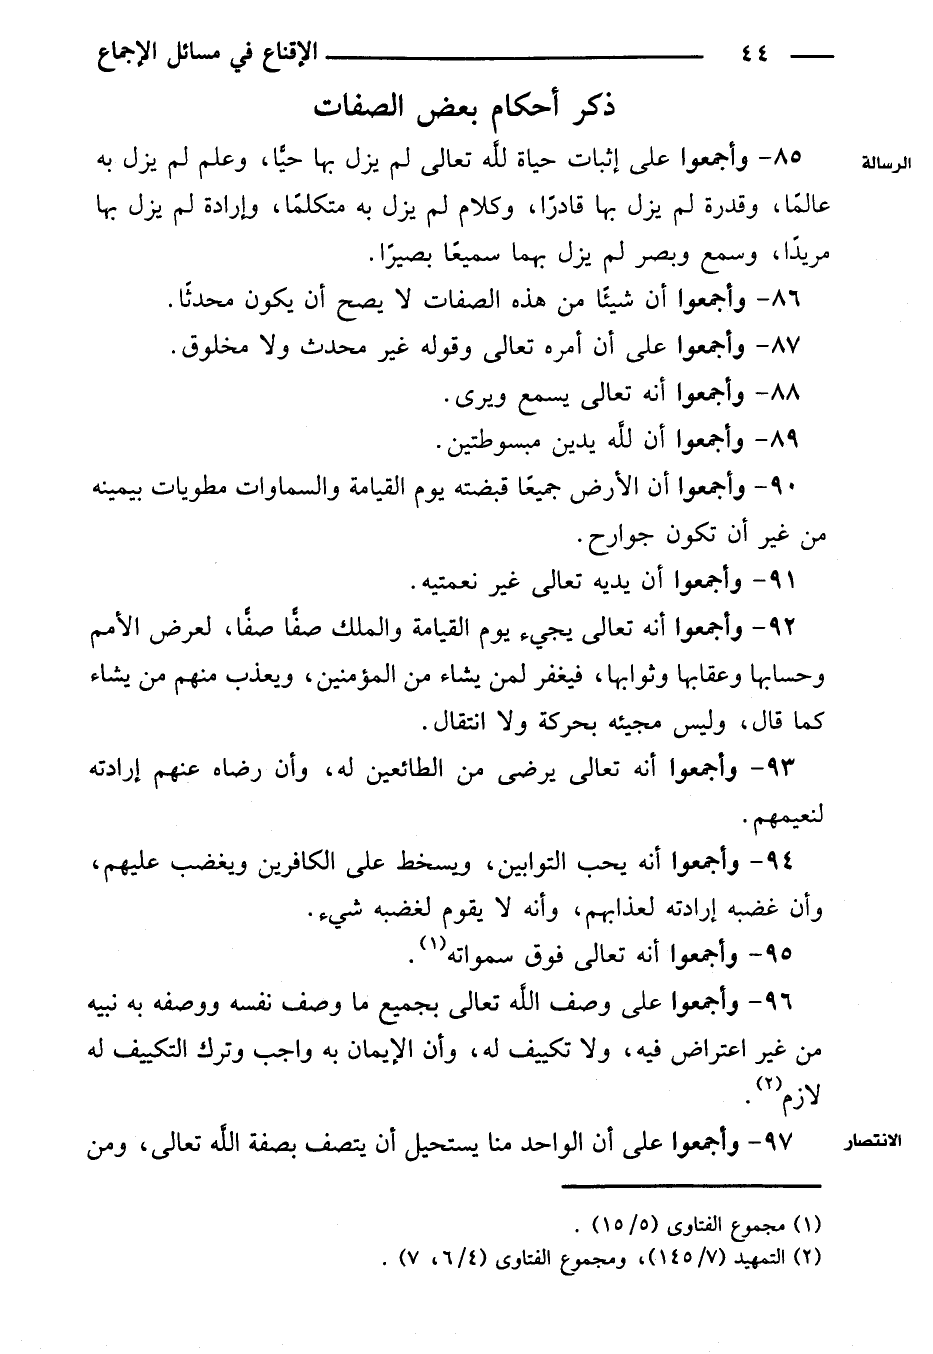 ٤٤ الإقناع في مسائل الإجماع
ذكر أحكام بعض الصفات
الرسالة ٨٥- وأجمعوا على إثبات حياة للَّه تعالى لم يزل بها حيًّا، وعلم لم يزل به
عالمًا، وقدرة لم يزل بها قادرًا، وكلام لم يزل به متكلمًا، وإرادة لم يزل بها
مريدًا، وسمع وبصر لم يزل بهما سميعًا بصيرًا.
٨٦- وأجمعوا أن شيئًا من هذه الصفات لا يصح أن يكون محدثًا.
٨٧- وأجمعوا على أن أمره تعالى وقوله غير محدث ولا مخلوق.
٨٨- وأجمعوا أنه تعالى يسمع ويرى.
٨٩- وأجمعوا أن للَّه يدين مبسوطتين.
٩٠- وأجمعوا أن الأرض جميعًا قبضته يوم القيامة والسماوات مطويات بيمينه
من غير أن تكون جوارح.
٩١- وأجمعوا أن يديه تعالى غير نعمتيه.
٩٢- وأجمعوا أنه تعالى يجيء يوم القيامة والملك صفًّا صفًّا، لعرض الأمم
وحسابها وعقابها وثوابها، فيغفر لمن يشاء من المؤمنين، ويعذب منهم من يشاء
كما قال، وليس مجيئه بحركة ولا انتقال.
٩٣- وأجمعوا أنه تعالى يرضى من الطائعين له، وأن رضاه عنهم إرادته
لنعيمهم.
٩٤- وأجمعوا أنه يحب التوابين، ويسخط على الكافرين ويغضب عليهم،
وأن غضبه إرادته لعذابهم، وأنه لا يقوم لغضبه شيء.
٩٥- وأجمعوا أنه تعالى فوق سمواته(١).
٩٦- وأجمعوا على وصف اللَّه تعالى بجميع ما وصف نفسه ووصفه به نبيه
من غير اعتراض فيه، ولا تكييف له، وأن الإيمان به واجب وترك التكييف له
لازم(٢).
الانتصار ٩٧- وأجمعوا على أن الواحد منا يستحيل أن يتصف بصفة اللَّه تعالى، ومن
(١) مجموع الفتاوى (١٥/٥).
(٢) التمهيد (١٤٥/٧)، ومجموع الفتاوى (٦/٤، ٧).